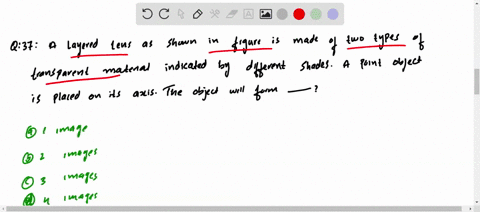 Q:37: A layered lens as shown in figure is made of two types of
transparent material indicated by different shades. A point object
is placed on its axis. The object will form ___ ?
(a) 1 image
(b) 2 images
(c) 3 images
(d) 4 images